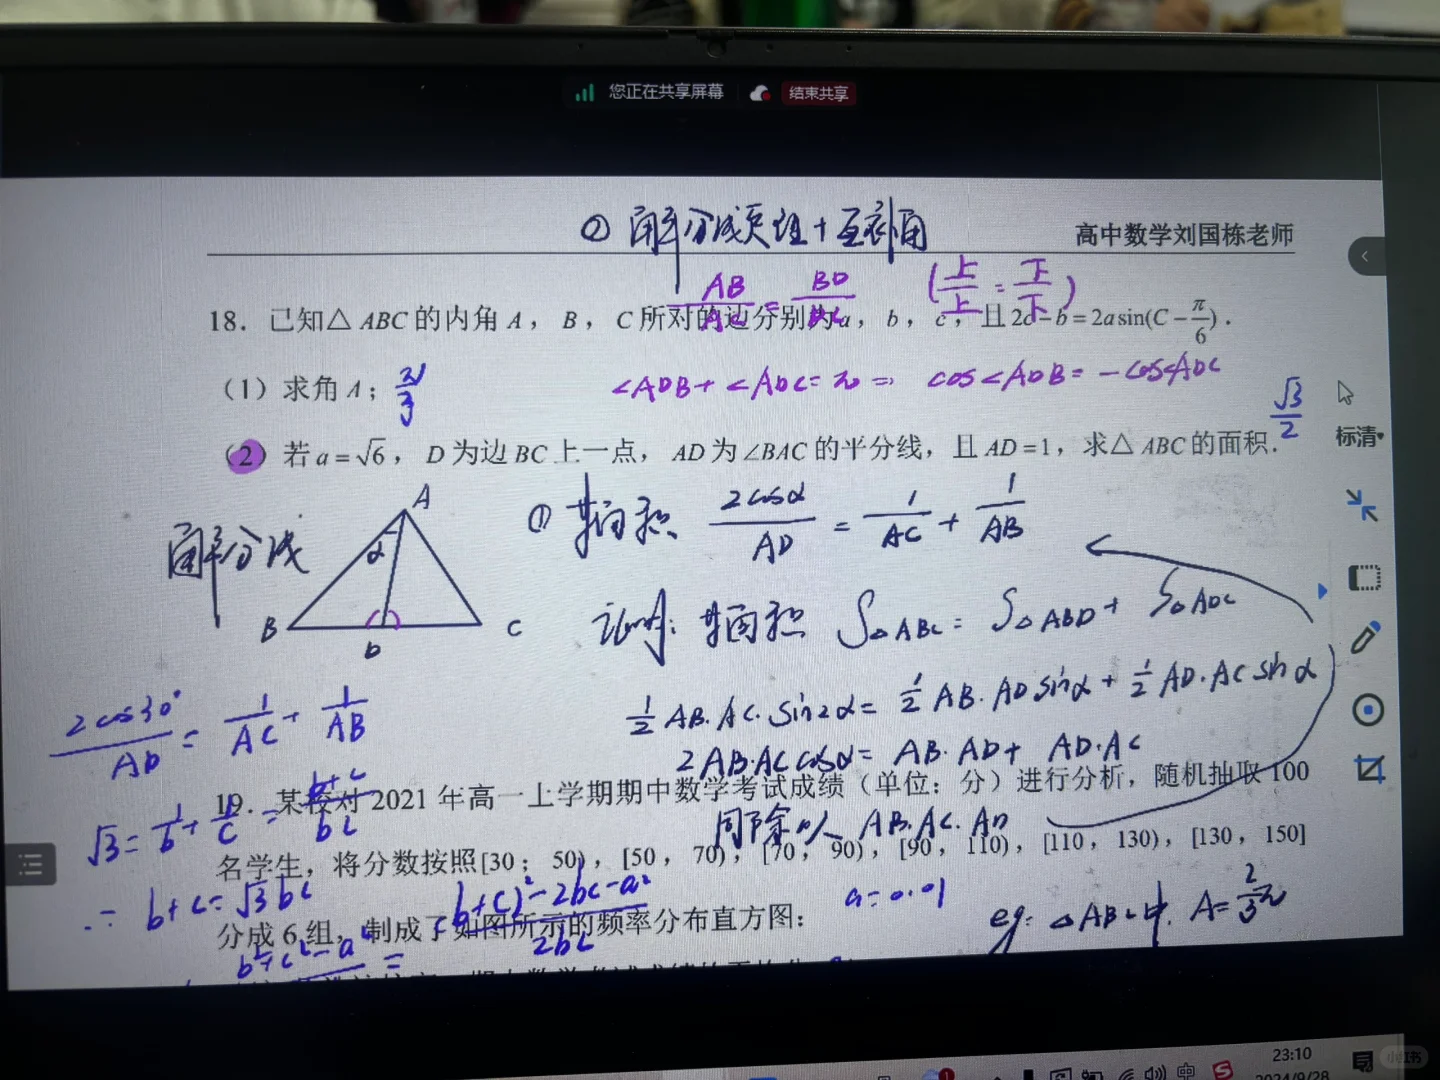 您正在共享屏幕 结束共享
② 角平分线定理+互补角
高中数学刘国栋老师
AB/AC = BD/DC (上/上 = 下/下)
18. 已知△ABC的内角A，B，C所对的边分别为a，b，c，且2c-b=2asin(C-π/6).
(1) 求角A； π/3
∠ADB+∠ADC=π ⇒ cos∠ADB=-cos∠ADC
√3/2
标清
(2) 若a=√6，D为边BC上一点，AD为∠BAC的平分线，且AD=1，求△ABC的面积.
角平分线
A
α
B
D
C
① 等面积 2cosα/AD = 1/AC + 1/AB
证明: 等面积 S△ABC = S△ABD + S△ADC
1/2 AB·AC·sin2α = 1/2 AB·ADsinα + 1/2 AD·AC sinα
2AB·AC cosα = AB·AD + AD·AC
同除以 AB·AC·AD
2cos30°/AD = 1/AC + 1/AB
√3 = 1/b + 1/c = b+c/bc
∴ b+c=√3bc
b²+c²-a² = (b+c)²-2bc-a²/2bc
19. 某校对2021年高一上学期期中数学考试成绩（单位：分）进行分析，随机抽取100
名学生，将分数按照[30；50)，[50，70)，[70，90)，[90，110)，[110，130)，[130，150]
分成6组，制成了如图所示的频率分布直方图：
a=0.01
eg: △ABC中, A=2/3π
23:10
2024/9/28
中
小红书